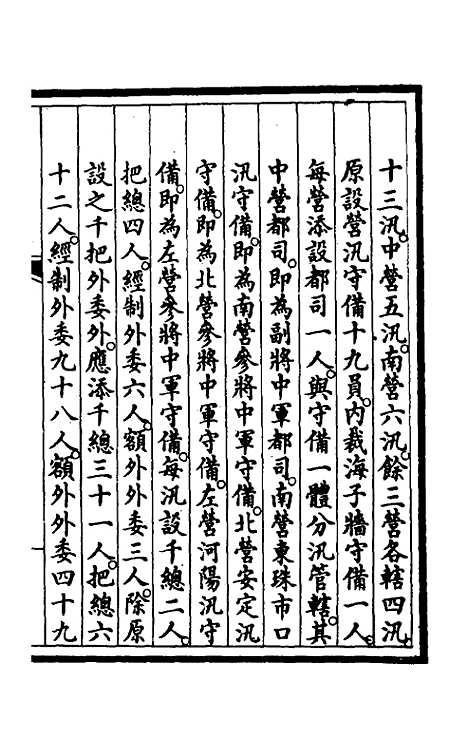 十三汛。中營五汛。南營六汛。餘三營各轄四汛。
原設營汛守備十九員。內裁海子牆守備一人。
每營添設都司一人。與守備一體分汛管轄。其
中營都司。即為副將中軍都司。南營東珠市口
汛守備。即為南營參將中軍守備。北營安定汛
守備。即為北營參將中軍守備。左營河陽汛守
備。即為左營參將中軍守備。每汛設千總二人。
把總四人。經制外委六人。額外外委三人。除原
設之千把外委外。應添千總三十一人。把總六
十二人。經制外委九十八人。額外外委四十九